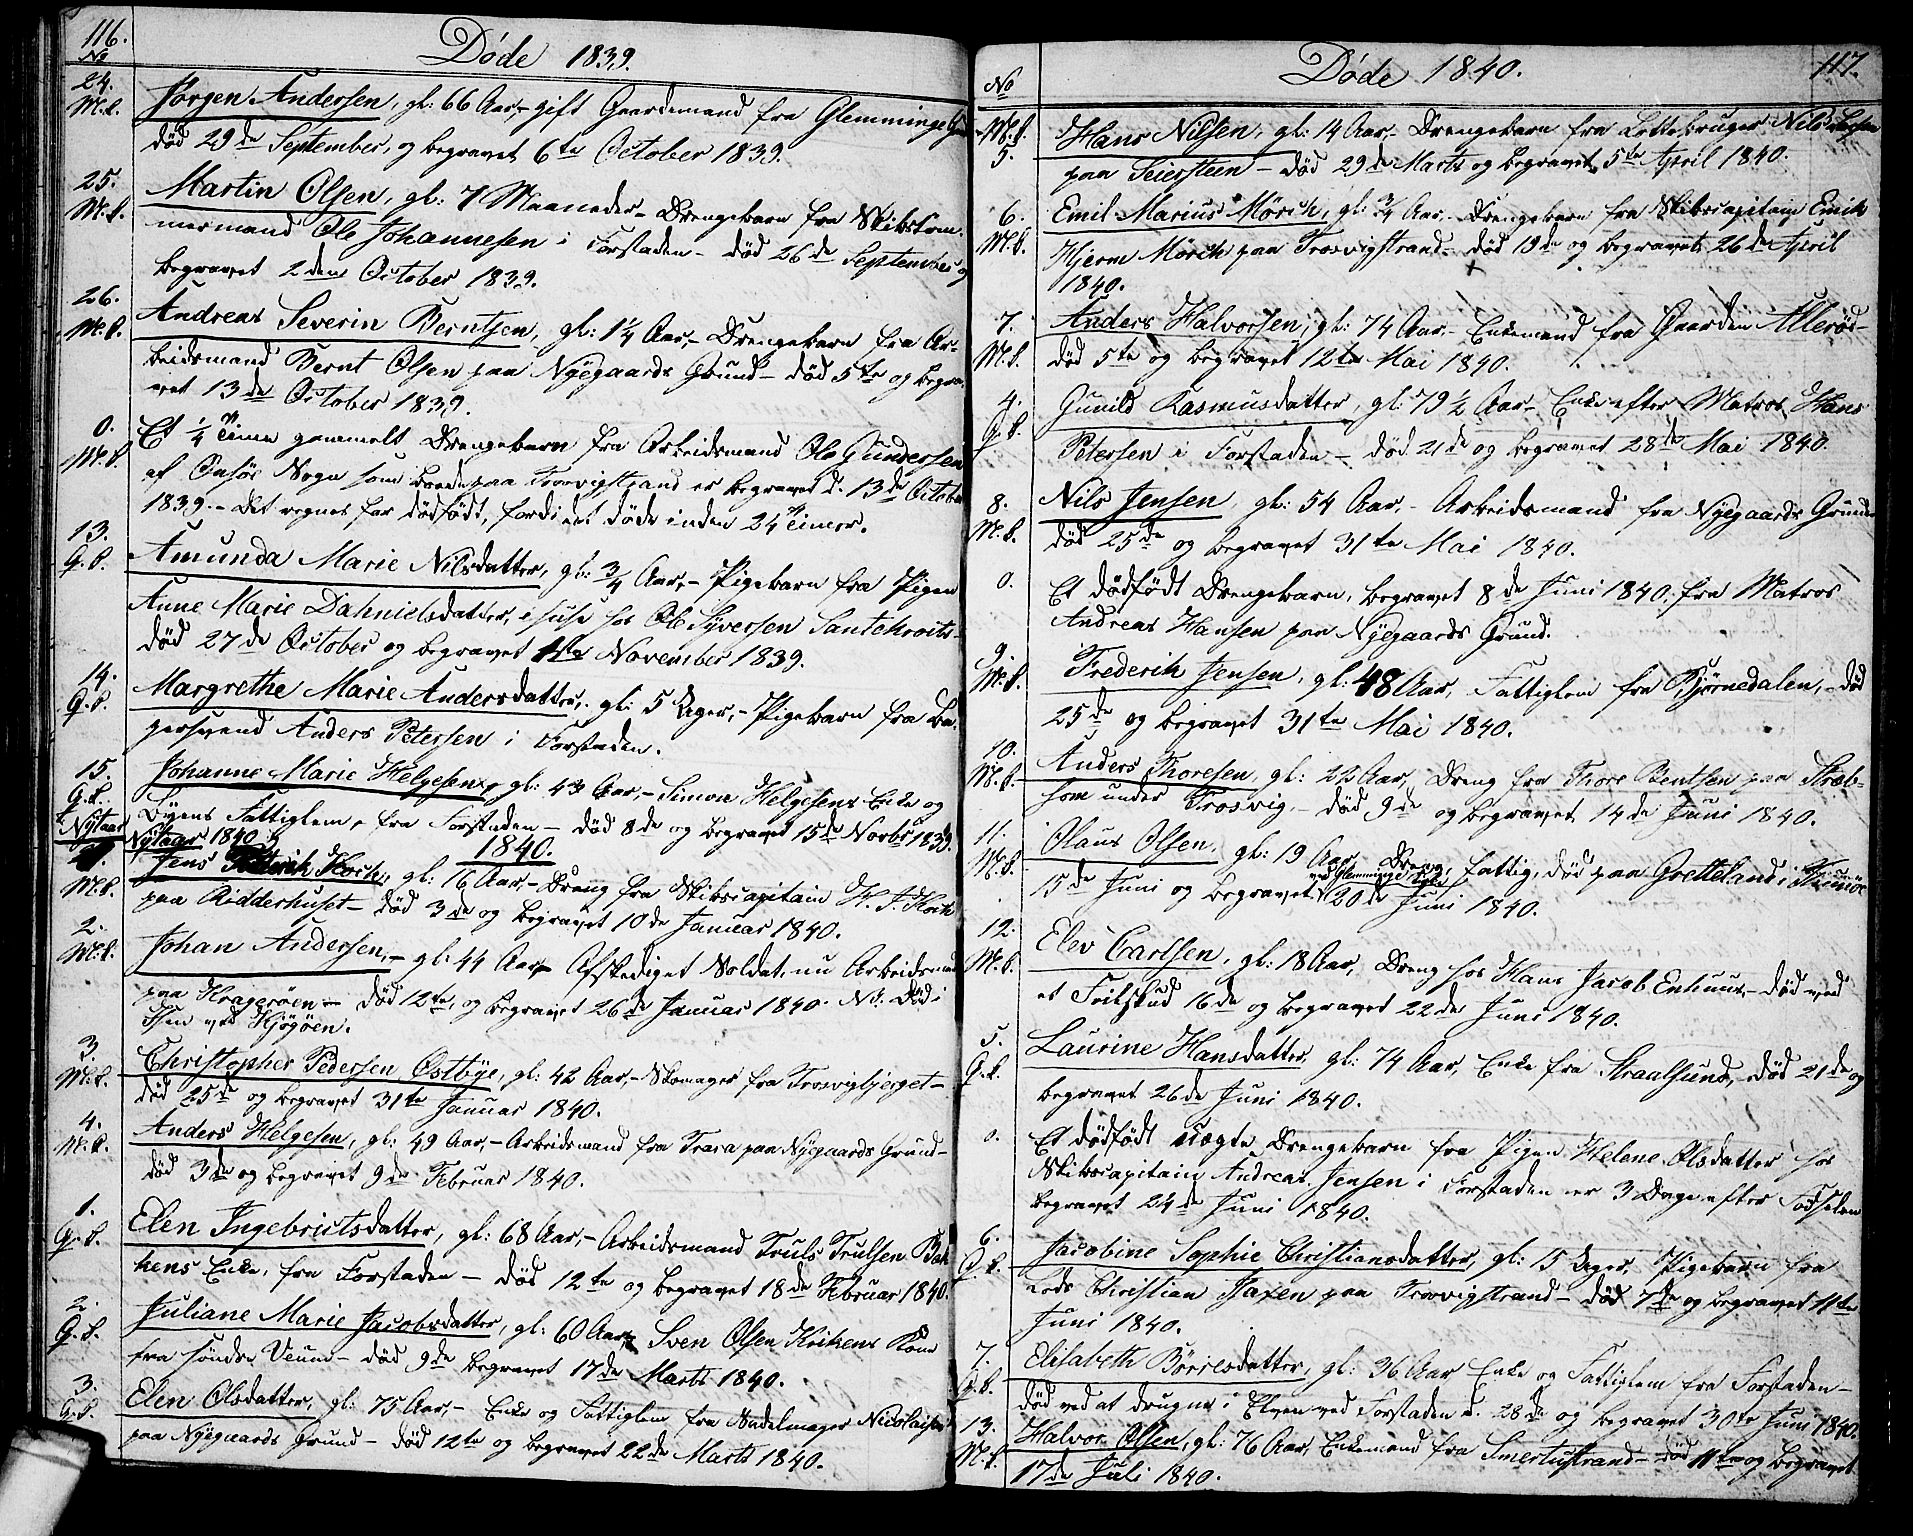 116.
Døde 1839.
No
24. Jørgen Andersen, gl: 66 Aar,- gift Gaardemand fra Glemminge
M.k. død 29de September, og begravet 6te October 1839.
25. Martin Olsen, gl: 7 Maaneder- Drengebarn fra Skibstøm-
M.k. mermand Ole Johannesen i Forstaden- død 26de September og
begravet 2den October 1839.
26. Andreas Severin Berntsen, gl: 1 1/4 Aar,- Drengebarn fra Ar-
M.k. beidsmand Bernt Olsen paa Nyegaards Grund- død 5te og begra-
vet 13de October 1839.
0. Et 1/4 Time gammelt Drengebarn fra Arbeidsmand Ole Gundersen
M.k. af Onsøe Sogn som boede paa Trosvigstrand er begravet d. 13de October
1839.- Det regnes for dødfødt, fordi det døde inden 24 Timer.
13. Amunda Marie Nilsdatter, gl: 3/4 Aar,- Pigebarn fra Pigen
Q.k. Anne Marie Dahnielsdatter, i huse hos Ole Syversen
død 27de October og begravet November 1839.
14. Margrethe Marie Andersdatter, gl: 5 Uger,- Pigebarn fra Ba-
Q.k. gersvend Anders Petersen i Forstaden.
15. Johanne Marie Helgesen, gl: 43 Aar,- Simon Helgesens Enke og
Q.k. Byens Fattiglem, fra Forstaden- død 8de og begravet 15de Novbr 1839.
Nytaar Nytaar 1840 1840.
Jens Hoich, gl: 16 Aar,- Dreng fra Skibscapitain H. J. Hoich
M.k. paa Ridderhuset- død 3de og begravet 10de Januar 1840.
2. Johan Andersen,- gl: 44 Aar,- Afskediget Soldat, nu Arbeidsmand
M.k. paa Kragerøen- død 12te, og begravet 26de Januar 1840. NB. Død i
ved Kjøgøen.
3. Christopher Pedersen Østbye, gl: 42 Aar,- Skomager fra Trosvigbjerget-
M.k. død 25de og begravet 31te Januar 1840.
4. Anders Helgesen, gl: 49 Aar,- Arbeidsmand fra Trara paa Nyegaards Grund-
M.k. død 3de og begravet 9de Februar 1840.
1. Elen Ingebrictsdatter, gl: 68 Aar,- Arbeidsmand Truls Trulsen Bak-
Q.k. kens Enke, fra Forstaden- død 12te og begravet 18de Februar 1840.
2. Juliane Marie Jacobsdatter, gl: 60 Aar, Sven Olsen Krikens Kone
Q.k. fra søndre Veum- død 9de begravet 17de Marts 1840.
3. Elen Olsdatter, gl: 75 Aar,- Enke og Fattiglem fra Sadelmager Nicolaisen
Q.k. paa Nyegaards Grund- død 12te og begravet 22de Marts 1840.
117.
Døde 1840.
No
M.k. Hans Nilsen, gl: 14 Aar,- Drengebarn fra Lottebruger Nils Larsen
5. paa Seiersteen- død 29de Marts og begravet 5te April 1840.
6. Emil Marius Mörch, gl: 3/4 Aar,- Drengebarn fra Skibscapitain Emik
M.k. Hjerm Mörch paa Trosvigstrand- død 19de og begravet 26de April
1840.
7. Anders Halvorsen, gl: 74 Aar,- Enkemand fra Gaarden Allerød-
M.k. død 5te og begravet 12te Mai 1840.
4. Gunild Rasmusdatter, gl: 79 1/2 Aar,- Enke efter Matros Hans
Q.k. Petersen i Forstaden- død 21de og begravet 28de Mai 1840.
8. Nils Jensen, gl: 54 Aar,- Arbeidsmand fra Nyegaards Grund
M.k. død 25de og begravet 31te Mai 1840.
0. Et dødfødt Drengebarn, begravet 8de Juni 1840, fra Matros
Andreas Hansen paa Nyegaards Grund.
9. Frederik Jensen, gl: 48 Aar, Fattiglem fra Bjørnedalen,- død
M.k. 25de og begravet 31te Mai 1840.
10. Anders Thoresen, gl: 22 Aar, Dreng fra Thore Bentsen paa
M.k. under Trosvig,- død 9de og begravet 14de Juni 1840.
11. Olaus Olsen, gl: 19 Aar, Dreng, fattig, død paa Grette
ved Glemminge Kirke
M.k. 15de Juni og begravet 20de Juni 1840.
12. Elev Carlsen, gl: 18 Aar, Dreng hos Hans Jacob Enhuus,- død ved
M.k. et 16de og begravet 22de Juni 1840.
5. Laurine Hansdatter, gl: 74 Aar, Enke fra Straalsund, død 21de og
Q.k. begravet 26de Juni 1840.
0. Et dødfødt uægte Drengebarn fra Pigen Helene Olsdatter hos
Skibscapitain Andreas Jensen i Forstaden er 3 Dage efter Fødselen
begravet 24de Juni 1840.
6. Jacobine Sophie Christiansdatter, gl: 15 Uger, Pigebarn fra
Q.k. Lods Christian paa Trosvigstrand- død 7de og begravet 11te
Juni 1840.
7. Elisabeth Börresdatter, gl: 36 Aar Enke og Fattiglem fra Forstaden-
Q.k. død ved at drugne i Elven ved Forstaden d. 28de og begravet 30te Juni 1840.
13. Halvor Olsen, gl: 76 Aar, Enkemand fra Smertustrand- død 11te og begravet
M.k. 17de Juli 1840.